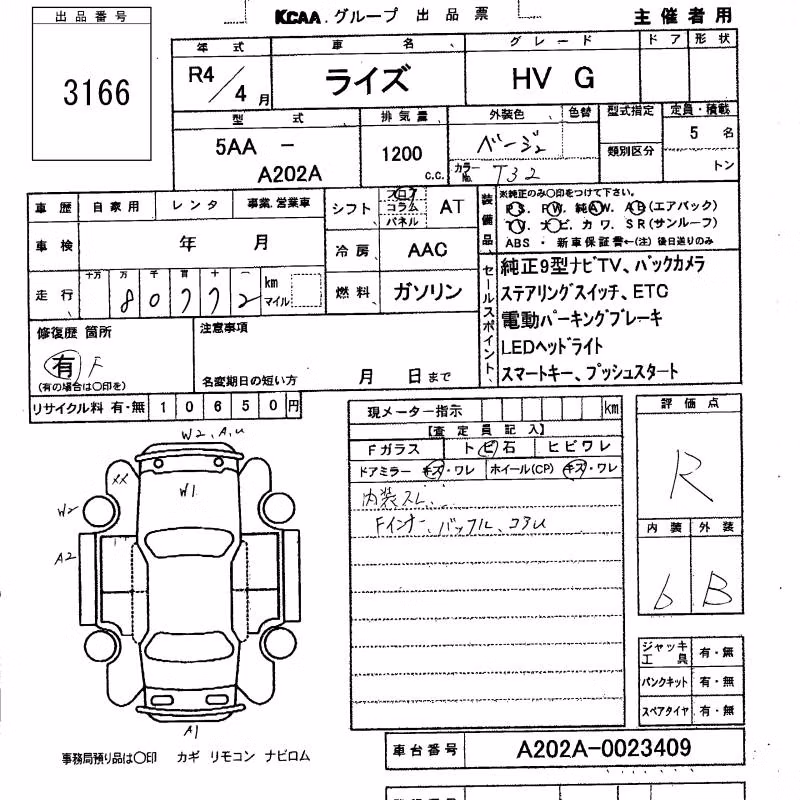 出品番号
3166
KCAA.グループ 出品票
主催者用
年式 車名 グレード ドア 形状
R4/4月 ライズ HV G
型式 排気量 外装色 色替 型式指定 定員・積載
5AA - A202A
1200 c.c.
ベージュ
カラーNo. T32
類別区分
5名
トン
車歴 自家用 レンタ 事業.営業車
シフト フロア コラム パネル AT
車検 年 月
冷房 AAC
走行 十万 万 千 百 十 一
80772 km マイル
燃料 ガソリン
装備品
※純正のみ○印をつけて下さい。
PS. PW. 純AW. AB(エアバック)
TV. ナビ. カワ. SR(サンルーフ)
ABS ・ 新車保証書←(注) 後日送りのみ
セールスポイント
純正9型ナビTV、バックカメラ
ステアリングスイッチ、ETC
電動パーキングブレーキ
LEDヘッドライト
スマートキー、プッシュスタート
修復歴 箇所
有 F
(有の場合は○印を)
注意事項
名変期日の短い方 月 日まで
リサイクル料 有・無 10650円
現メーター指示 km
【査定員記入】
Fガラス トビ石 ヒビワレ
ドアミラー キズ・ワレ ホイール(CP) キズ・ワレ
内装スレ、
Fインナー、バッフル、コアU
評価点
R
内装 外装
6 B
W2、A、U
XX
W1
W2
A2
A1
ジャッキ工具 有・無
パンクキット 有・無
スペアタイヤ 有・無
事務局預り品は○印 カギ リモコン ナビロム
車台番号 A202A-0023409